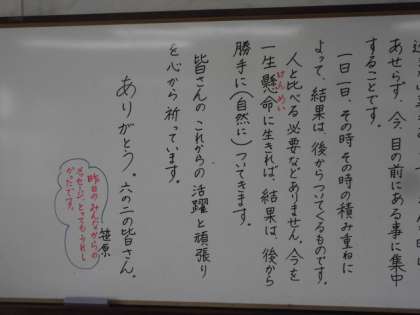 あせらず、今、目の前にある事に集中
することです。
一日一日、その時その時の積み重ねに
よって、結果は、後からついてくるものです。
人と比べる必要などありません。今を
一生懸命に生きれば、結果は、後から
けんめい
勝手に(自然に)ついてきます。
皆さんのこれからの活躍と頑張り
を心から祈っています。
ありがとう。六の二の皆さん。
笹原
昨日のみんなからの
メッセージ、とってもうれし
かったです。